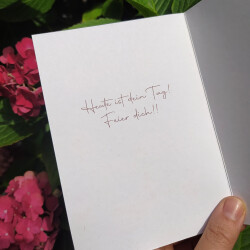 Heute ist dein Tag!
Feier dich!!